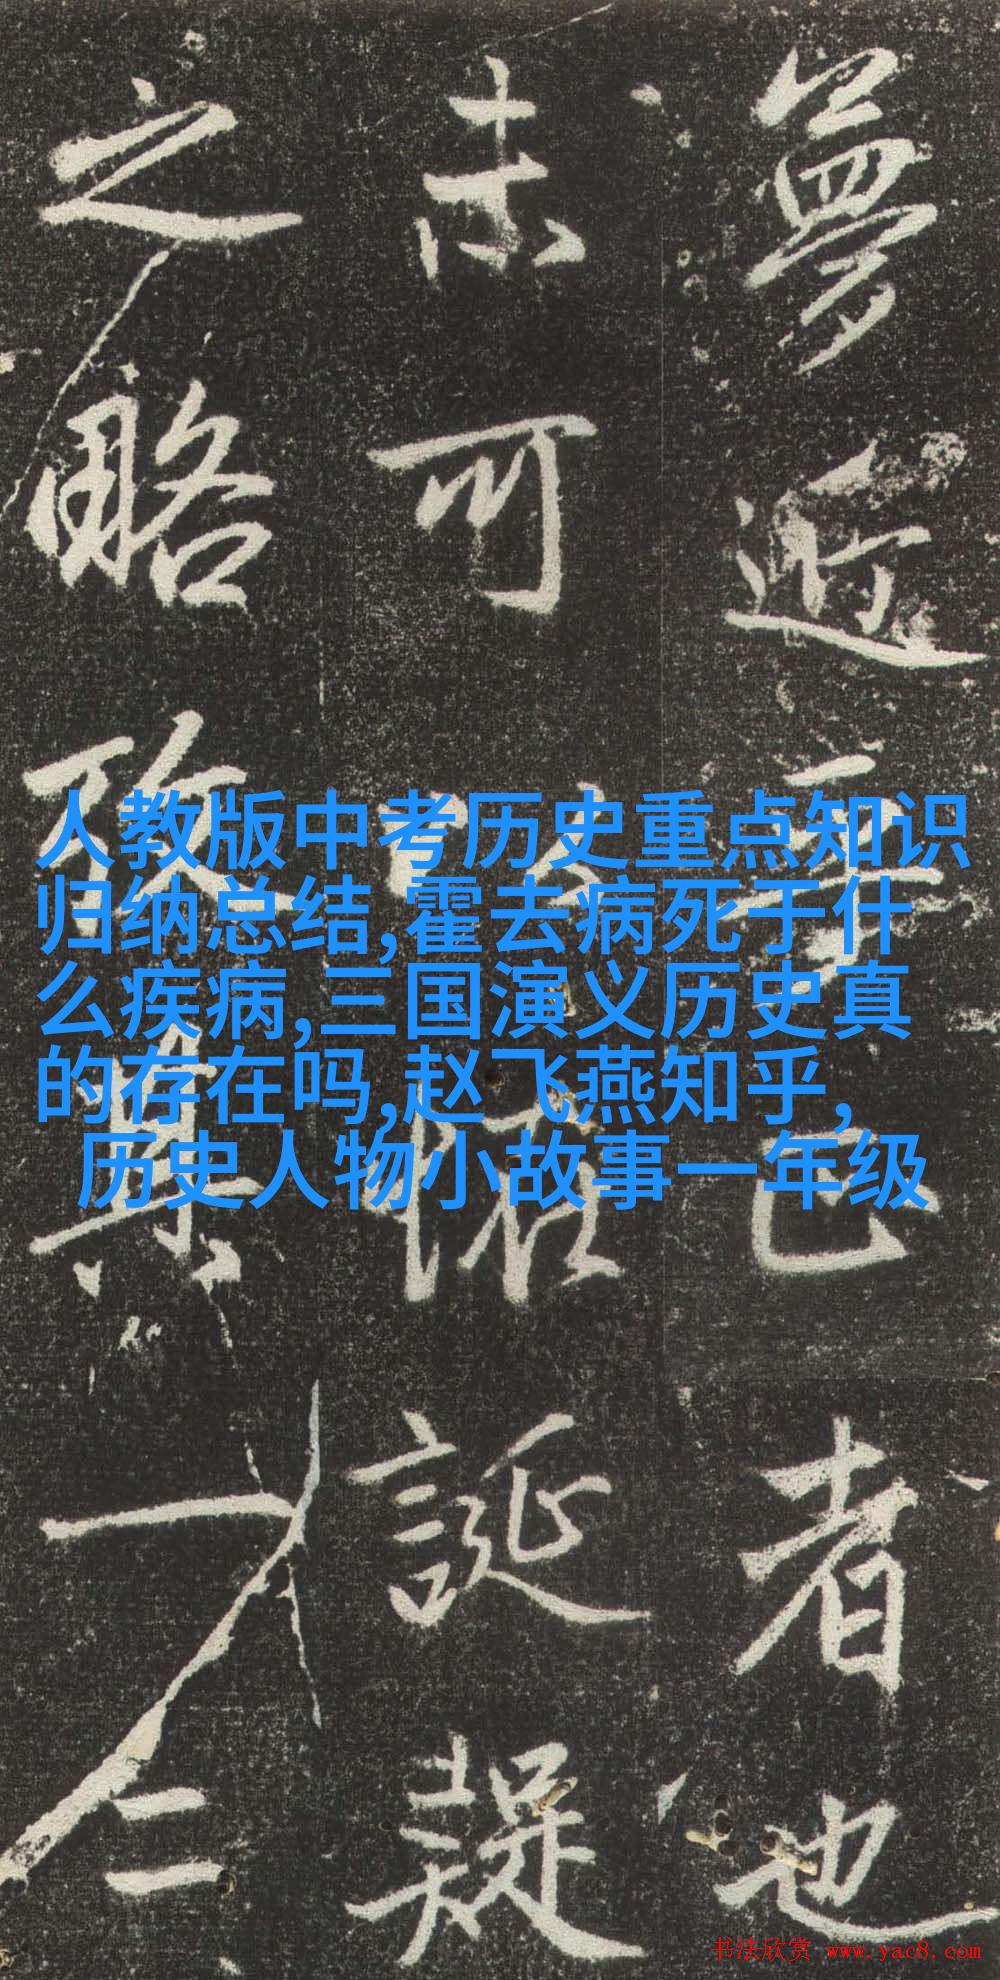 夢近事已者也
未可以怪誕疑
之略故其一二
人教版中考历史重点知识
归纳总结,霍去病死于什
么疾病,三国演义历史真
的存在吗,赵飞燕知乎,
历史人物小故事一年级
书法欣赏 www.yac8.com